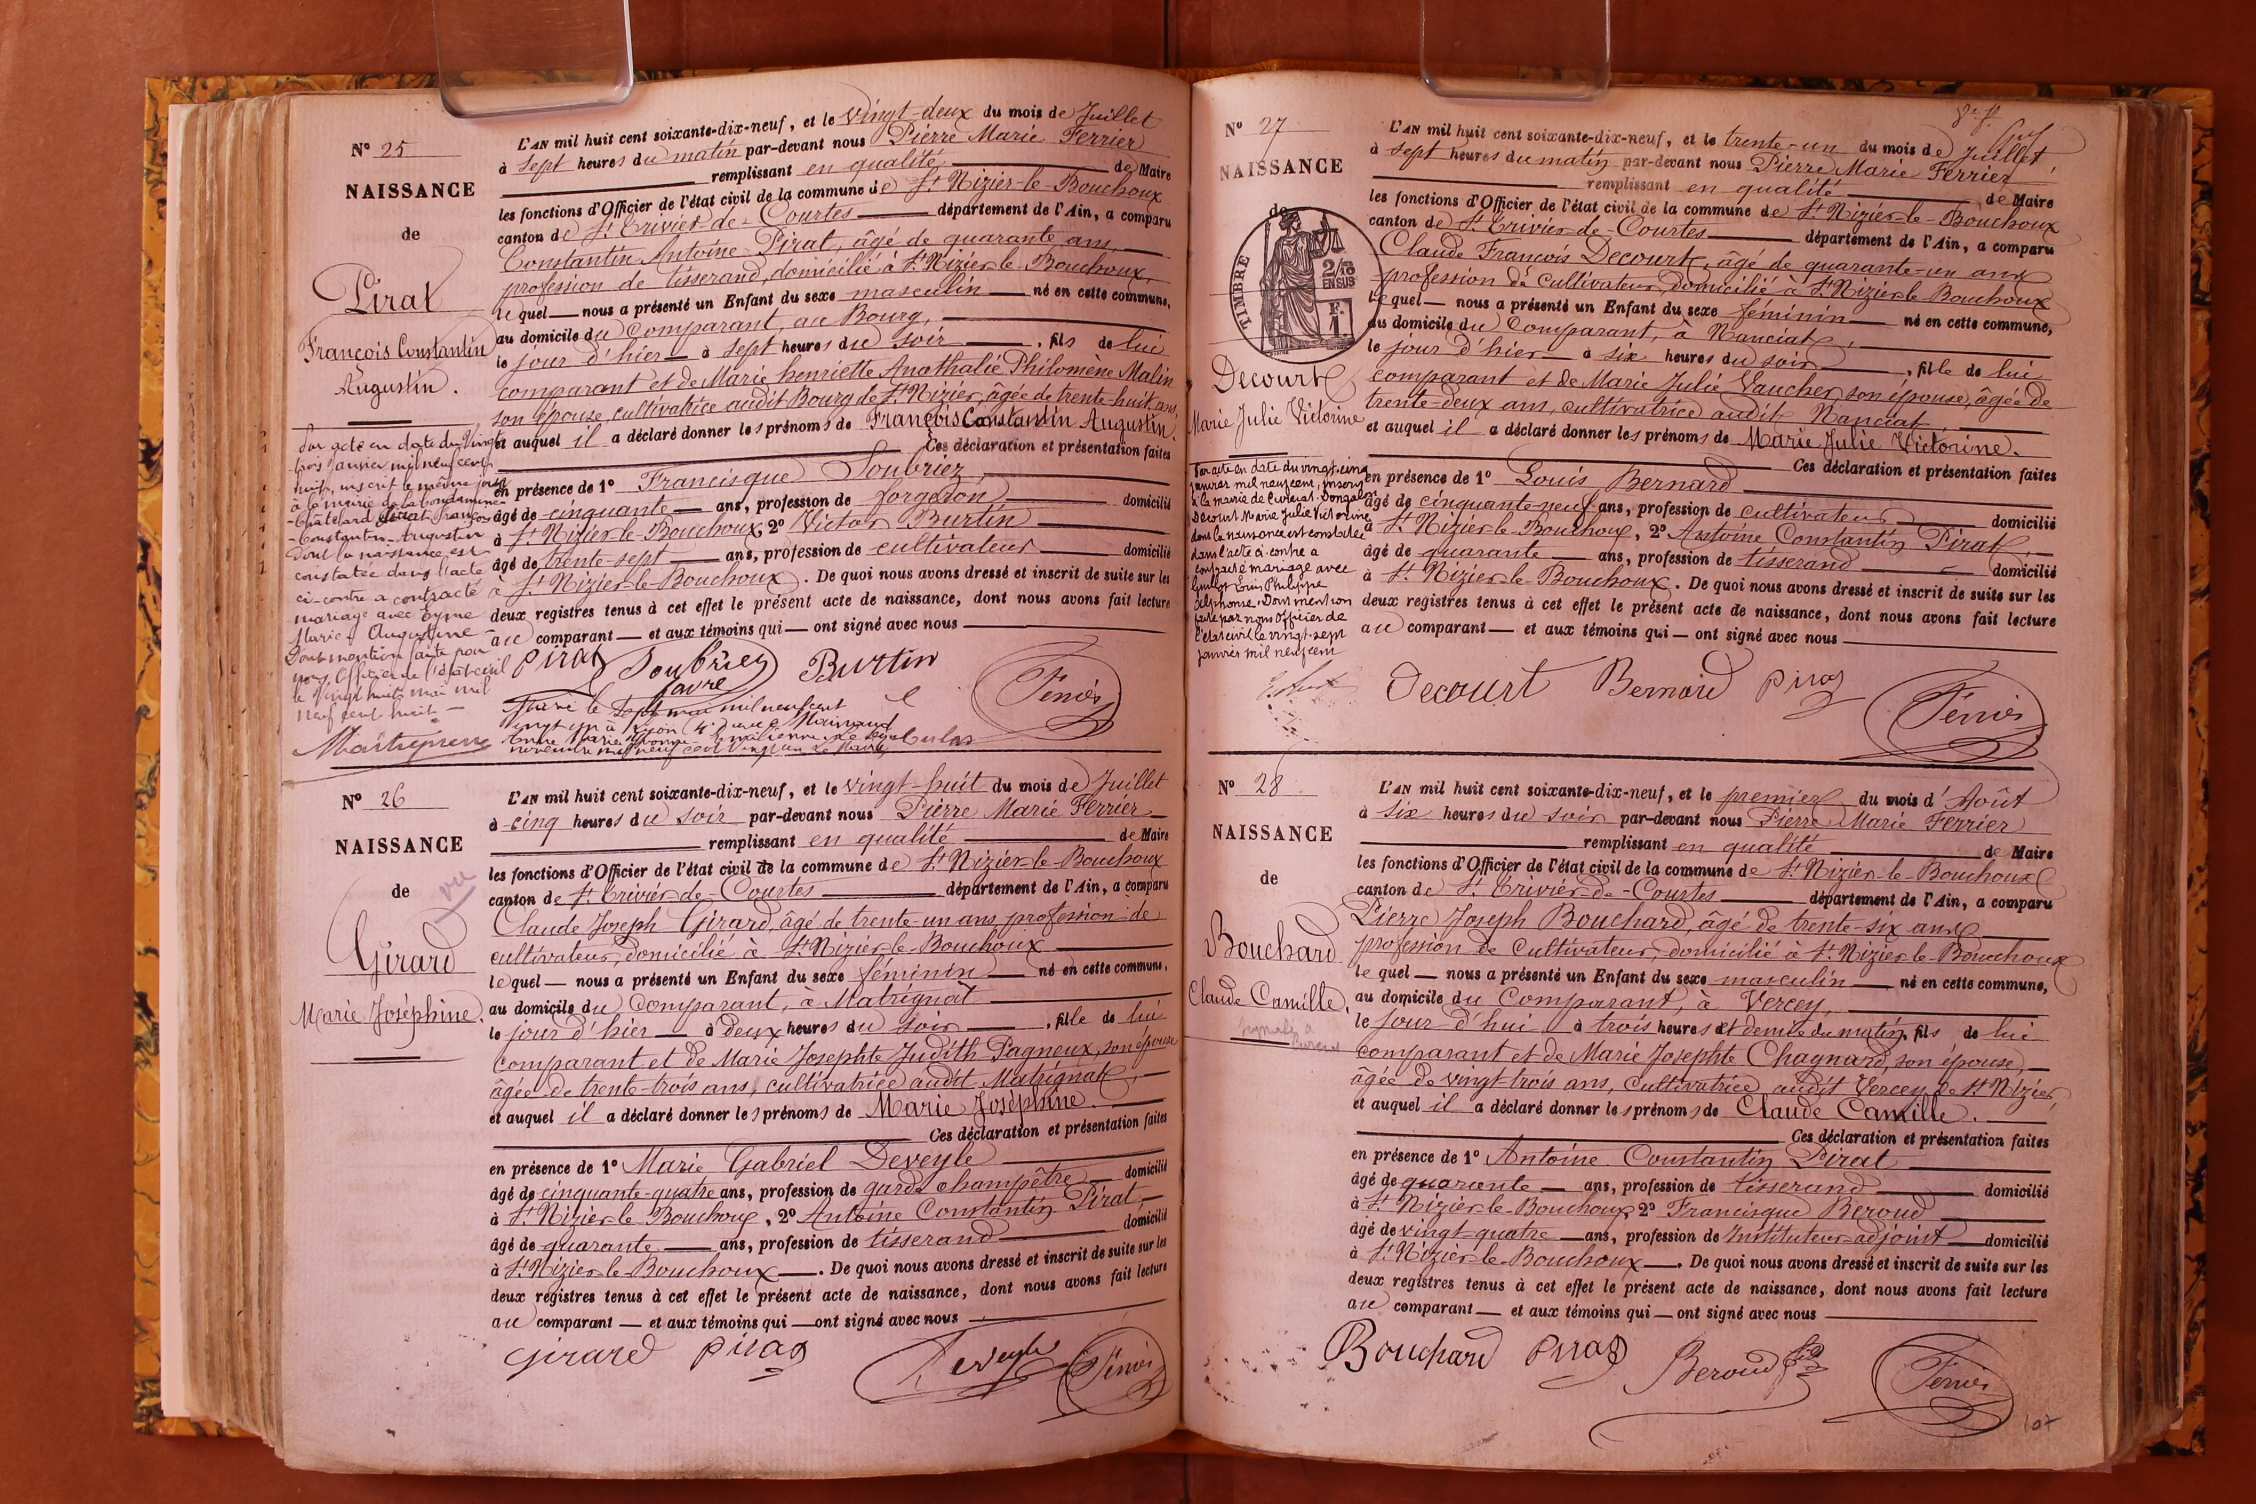 Nº 25
NAISSANCE
de
Pirat
François Constantin
Augustin.
Par acte en date du Vingt
trois janvier mil neuf cent
huit, inscrit le même jour
à la mairie de
Châtelard Pirat François
Constantin Augustin
dont la naissance est
constatée dans l'acte
ci-contre a contracté
mariage avec Eyme
Marie Augustine
Dont mention faite par
nous Officier de l'état-civil
le vingt huit mai mil
neuf cent huit
L'AN mil huit cent soixante-dix-neuf, et le vingt-deux du mois de Juillet
à sept heures du matin par-devant nous Pierre Marie Ferrier
remplissant en qualité de Maire
les fonctions d'Officier de l'état civil de la commune de St Nizier-le-Bouchoux
canton de St Trivier-de-Courtes département de l'Ain, a comparu
Constantin Antoine Pirat, âgé de quarante ans,
profession de tisserand, domicilié à St Nizier-le-Bouchoux,
lequel nous a présenté un Enfant du sexe masculin né en cette commune,
au domicile du comparant, au Bourg,
le jour d'hier à sept heures du soir, fils de lui
comparant et de Marie henriette Anathalie Philomène Malin
son épouse, cultivatrice audit Bourg de St Nizier, âgée de trente-huit ans,
et auquel il a déclaré donner les prénoms de François Constantin Augustin.
Ces déclaration et présentation faites
en présence de 1º Francisque Soubriez
âgé de cinquante ans, profession de forgeron domicilié
à St Nizier-le-Bouchoux, 2º Victor Burtin
âgé de trente-sept ans, profession de cultivateur domicilié
à St Nizier-le-Bouchoux. De quoi nous avons dressé et inscrit de suite sur les
deux registres tenus à cet effet le présent acte de naissance, dont nous avons fait lecture
au comparant et aux témoins qui ont signé avec nous
Pirat Soubriez Burtin Ferrier
Marié le sept mai mil neuf cent
vingt un à Lyon
novembre mil neuf cent vingt un Le Maire
Nº 26
NAISSANCE
de
vu
Girard
Marie Joséphine.
L'AN mil huit cent soixante-dix-neuf, et le vingt-huit du mois de Juillet
à cinq heures du soir par-devant nous Pierre Marie Ferrier
remplissant en qualité de Maire
les fonctions d'Officier de l'état civil de la commune de St Nizier-le-Bouchoux
canton de St Trivier-de-Courtes département de l'Ain, a comparu
Claude Joseph Girard, âgé de trente-un ans, profession de
cultivateur, domicilié à St Nizier-le-Bouchoux
lequel nous a présenté un Enfant du sexe féminin né en cette commune,
au domicile du comparant, à Matrignat
le jour d'hier à deux heures du soir, fille de lui
comparant et de Marie Josephte Judith Pagneux, son épouse
âgée de trente-trois ans, cultivatrice audit Matrignat,
et auquel il a déclaré donner les prénoms de Marie Joséphine.
Ces déclaration et présentation faites
en présence de 1º Marie Gabriel Deveyle
âgé de cinquante-quatre ans, profession de garde champêtre domicilié
à St Nizier-le-Bouchoux, 2º Antoine Constantin Pirat
âgé de quarante ans, profession de tisserand domicilié
à St Nizier-le-Bouchoux. De quoi nous avons dressé et inscrit de suite sur les
deux registres tenus à cet effet le présent acte de naissance, dont nous avons fait lecture
au comparant et aux témoins qui ont signé avec nous
Girard Pirat Deveyle Ferrier
Nº 27
NAISSANCE
de
TIMBRE
2/10
EN SUS
F.
1
Decourt
Marie Julie Victorine
Par acte en date du vingt-cinq
janvier mil neuf cent, inscrit
à la mairie de Curciat-Dongalon
Decourt Marie Julie Victorine
dont la naissance est constatée
dans l'acte ci-contre a
contracté mariage avec
Guillot Louis Philippe
Alphonse. Dont mention
faite par nous Officier de
l'état civil le vingt-sept
janvier mil neuf cent
L'AN mil huit cent soixante-dix-neuf, et le trente-un du mois de Juillet
à sept heures du matin par-devant nous Pierre Marie Ferrier,
remplissant en qualité de Maire
les fonctions d'Officier de l'état civil de la commune de St Nizier-le-Bouchoux
canton de St Trivier-de-Courtes département de l'Ain, a comparu
Claude François Decourt, âgé de quarante-un ans
profession de cultivateur, domicilié à St Nizier-le-Bouchoux
lequel nous a présenté un Enfant du sexe féminin né en cette commune,
au domicile du comparant, à Nanciat,
le jour d'hier à six heures du soir, fille de lui
comparant et de Marie Julie Vaucher, son épouse, âgée de
trente-deux ans, cultivatrice audit Nanciat,
et auquel il a déclaré donner les prénoms de Marie Julie Victorine.
Ces déclaration et présentation faites
en présence de 1º Louis Bernard
âgé de cinquante-neuf ans, profession de cultivateur domicilié
à St Nizier-le-Bouchoux, 2º Antoine Constantin Pirat,
âgé de quarante ans, profession de tisserand domicilié
à St Nizier-le-Bouchoux. De quoi nous avons dressé et inscrit de suite sur les
deux registres tenus à cet effet le présent acte de naissance, dont nous avons fait lecture
au comparant et aux témoins qui ont signé avec nous
Decourt Bernard Pirat Ferrier
Nº 28
NAISSANCE
de
Bouchard
Claude Camille.
L'AN mil huit cent soixante-dix-neuf, et le premier du mois d'Août
à six heures du soir par-devant nous Pierre Marie Ferrier
remplissant en qualité de Maire
les fonctions d'Officier de l'état civil de la commune de St Nizier-le-Bouchoux
canton de St Trivier-de-Courtes département de l'Ain, a comparu
Pierre Joseph Bouchard, âgé de trente-six ans
profession de cultivateur, domicilié à St Nizier-le-Bouchoux
lequel nous a présenté un Enfant du sexe masculin né en cette commune,
au domicile du comparant, à Vercey,
le jour d'hui à trois heures et demie du matin, fils de lui
comparant et de Marie Josephte Chagnard, son épouse,
âgée de vingt-trois ans, cultivatrice audit Vercey de St Nizier,
et auquel il a déclaré donner les prénoms de Claude Camille.
Ces déclaration et présentation faites
en présence de 1º Antoine Constantin Pirat
âgé de quarante ans, profession de tisserand domicilié
à St Nizier-le-Bouchoux, 2º Francisque Beroud
âgé de vingt-quatre ans, profession de Instituteur-adjoint domicilié
à St Nizier-le-Bouchoux. De quoi nous avons dressé et inscrit de suite sur les
deux registres tenus à cet effet le présent acte de naissance, dont nous avons fait lecture
au comparant et aux témoins qui ont signé avec nous
Bouchard Pirat Beroud Ferrier
107